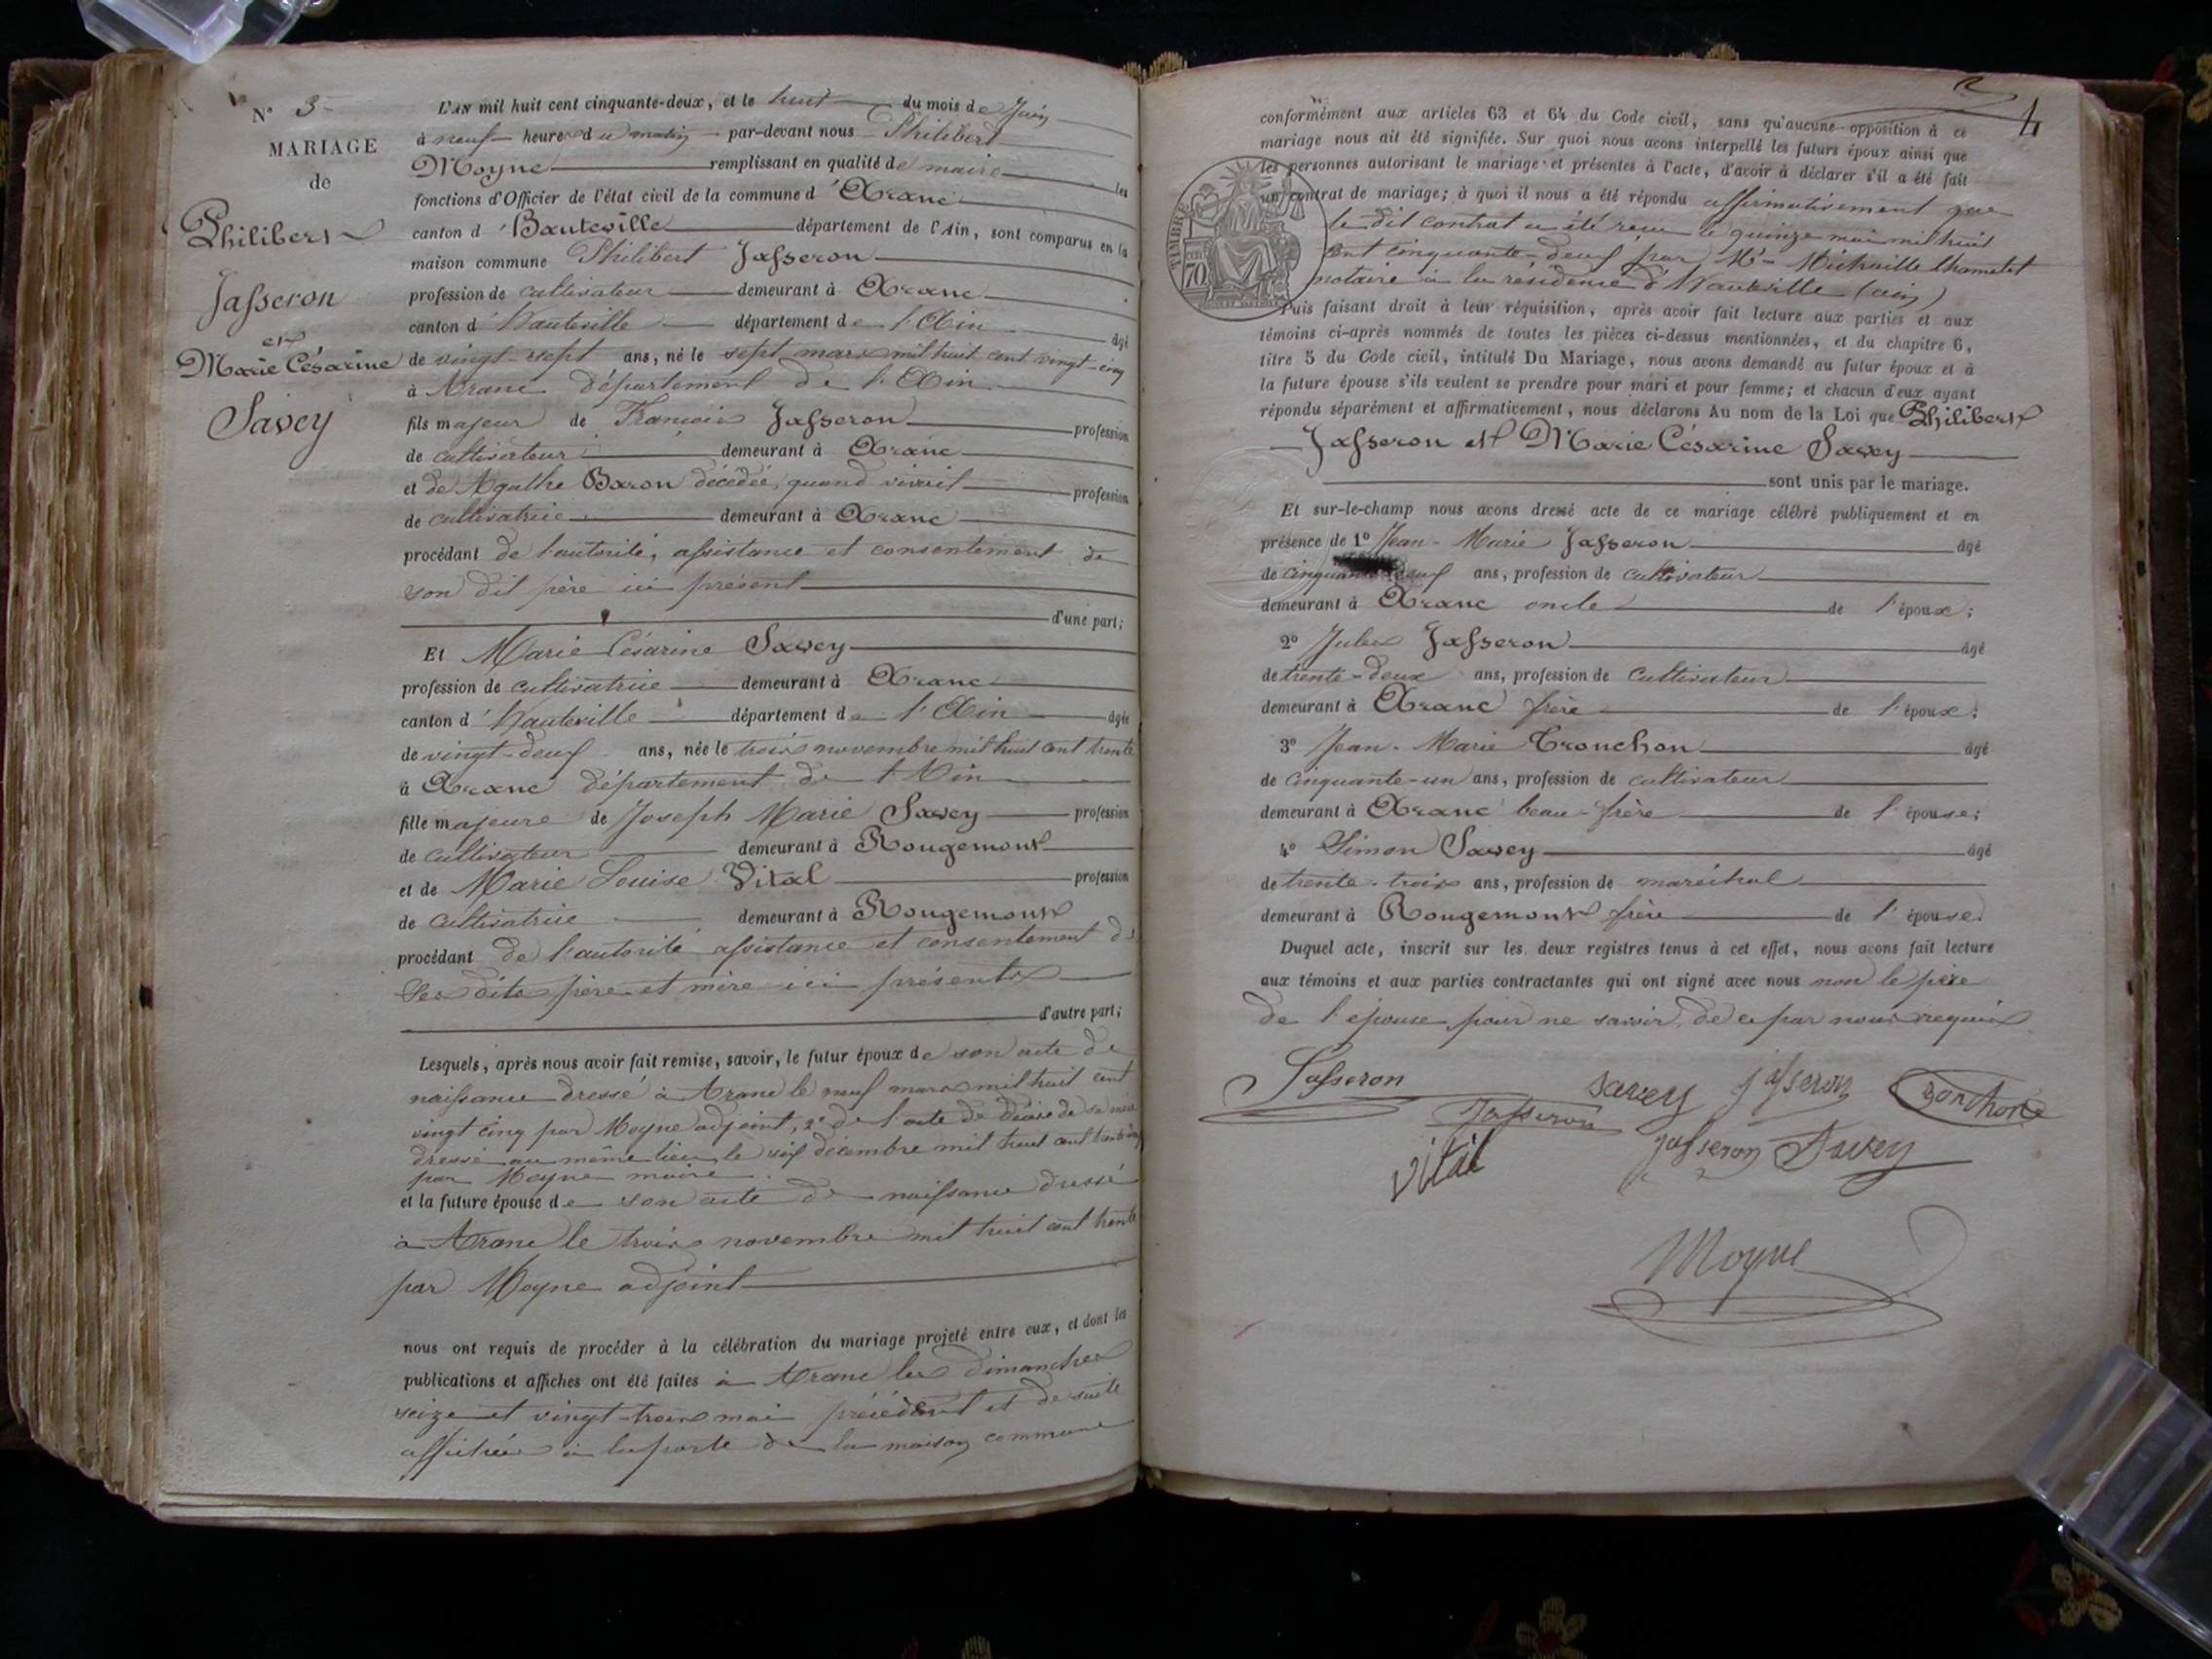 N° 3
MARIAGE
de
Philibert
Jasseron
et
Marie Césarine
Savey
L'AN mil huit cent cinquante-deux, et le huit du mois de Juin
à neuf heures du matin par-devant nous Philibert
Moyne remplissant en qualité de maire les
fonctions d'Officier de l'état civil de la commune d'Aranc
canton d'Hauteville département de l'Ain, sont comparus en la
maison commune Philibert Jasseron
profession de cultivateur demeurant à Aranc
canton d'Hauteville département de l'Ain âgé
de vingt-sept ans, né le sept mars mil huit cent vingt-cinq
à Aranc département de l'Ain
fils majeur de François Jasseron profession
de cultivateur demeurant à Aranc
et de Agathe Baron décédée, quand vivait profession
de cultivatrice demeurant à Aranc
procédant de l'autorité, assistance et consentement de
son dit père ici présent
d'une part;
Et Marie Césarine Savey
profession de cultivatrice demeurant à Aranc
canton d'Hauteville département de l'Ain âgée
de vingt-deux ans, née le trois novembre mil huit cent trente
à Aranc département de l'Ain
fille majeure de Joseph Marie Savey profession
de cultivateur demeurant à Rougemont
et de Marie Louise Vital profession
de cultivatrice demeurant à Rougemont
procédant de l'autorité assistance et consentement de
ses dits père et mère ici présents
d'autre part;
Lesquels, après nous avoir fait remise, savoir, le futur époux de son acte de
naissance dressé à Aranc le neuf mars mil huit cent
vingt cinq par Moyne adjoint, 2° de l'acte de décès de sa mère
dressé au même lieu le six décembre mil huit cent
par Moyne maire
et la future épouse de son acte de naissance dressé
à Aranc le trois novembre mil huit cent trente
par Moyne adjoint
nous ont requis de procéder à la célébration du mariage projeté entre eux, et dont les
publications et affiches ont été faites à Aranc les dimanches
seize et vingt-trois mai précédent et de suite
affichées à la porte de la maison commune
4
conformément aux articles 63 et 64 du Code civil, sans qu'aucune opposition à ce
mariage nous ait été signifiée. Sur quoi nous avons interpellé les futurs époux ainsi que
les personnes autorisant le mariage et présentes à l'acte, d'avoir à déclarer s'il a été fait
un contrat de mariage; à quoi il nous a été répondu affirmativement que
le dit contrat a été reçu le quinze mai mil huit
cent cinquante-deux par Me
notaire à la résidence d'Hauteville (ain)
TIMBRE
70
Puis faisant droit à leur réquisition, après avoir fait lecture aux parties et aux
témoins ci-après nommés de toutes les pièces ci-dessus mentionnées, et du chapitre 6,
titre 5 du Code civil, intitulé Du Mariage, nous avons demandé au futur époux et à
la future épouse s'ils veulent se prendre pour mari et pour femme; et chacun d'eux ayant
répondu séparément et affirmativement, nous déclarons Au nom de la Loi que Philibert
Jasseron et Marie Césarine Savey
sont unis par le mariage.
Et sur-le-champ nous avons dressé acte de ce mariage célébré publiquement et en
présence de 1° Jean-Marie Jasseron âgé
de cinquante neuf ans, profession de cultivateur
demeurant à Aranc oncle de l'époux;
2° Jules Jasseron âgé
de trente-deux ans, profession de cultivateur
demeurant à Aranc frère de l'époux;
3° Jean-Marie Tronchon âgé
de cinquante-un ans, profession de cultivateur
demeurant à Aranc beau-frère de l'épouse;
4° Simon Savey âgé
de trente-trois ans, profession de maréchal
demeurant à Rougemont frère de l'épouse.
Duquel acte, inscrit sur les deux registres tenus à cet effet, nous avons fait lecture
aux témoins et aux parties contractantes qui ont signé avec nous non le père
de l'épouse pour ne savoir de ce par nous requis
Jasseron savey jasseron
Jasseron
vital jasseron Savey
Moyne